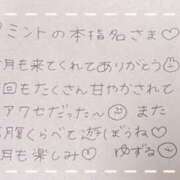 ミントの本指名さま♡
月も来てくれてありがとう
回もたくさん甘やかされて
アワセだった〜 また
腹くらべて遊ぼうね♡
月も楽しみ♡ ゆずる